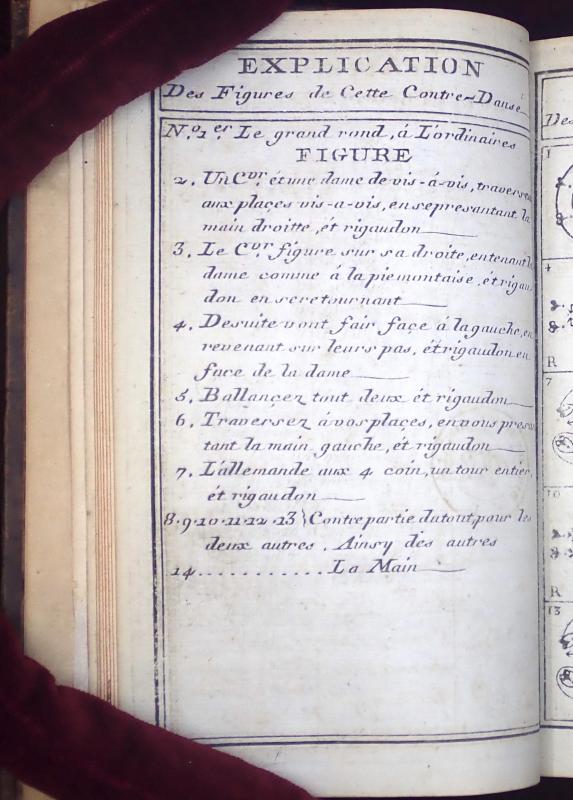 EXPLICATION
Des Figures de Cette Contre-Danse
N.º 1.er Le grand rond, á L'ordinaires
FIGURE
2. Un C.vr. ét une dame de vis-á-vis, traverse
aux plaçes vis-a-vis, en se presantant la
main droitte, ét rigaudon
3. Le C.vr. figure sur sa droite, en tenant
dame comme á la piemontaise, ét rigau
don en se retournant
4. De suite vont fair façe á la gauche, en
revenant sur leurs pas, ét rigaudon en
façe de la dame
5. Ballançez tout deux ét rigaudon
6. Traversez á vos plaçes, en vous presa
tant la main gauche, ét rigaudon
7. L'allemande aux 4 coin, un tour entier,
ét rigaudon
8.9.10.11.12.13 } Contre partie du tout, pour les
deux autres, Ainsy des autres
14............ La Main
Des
1
4
R
7
10
R
13